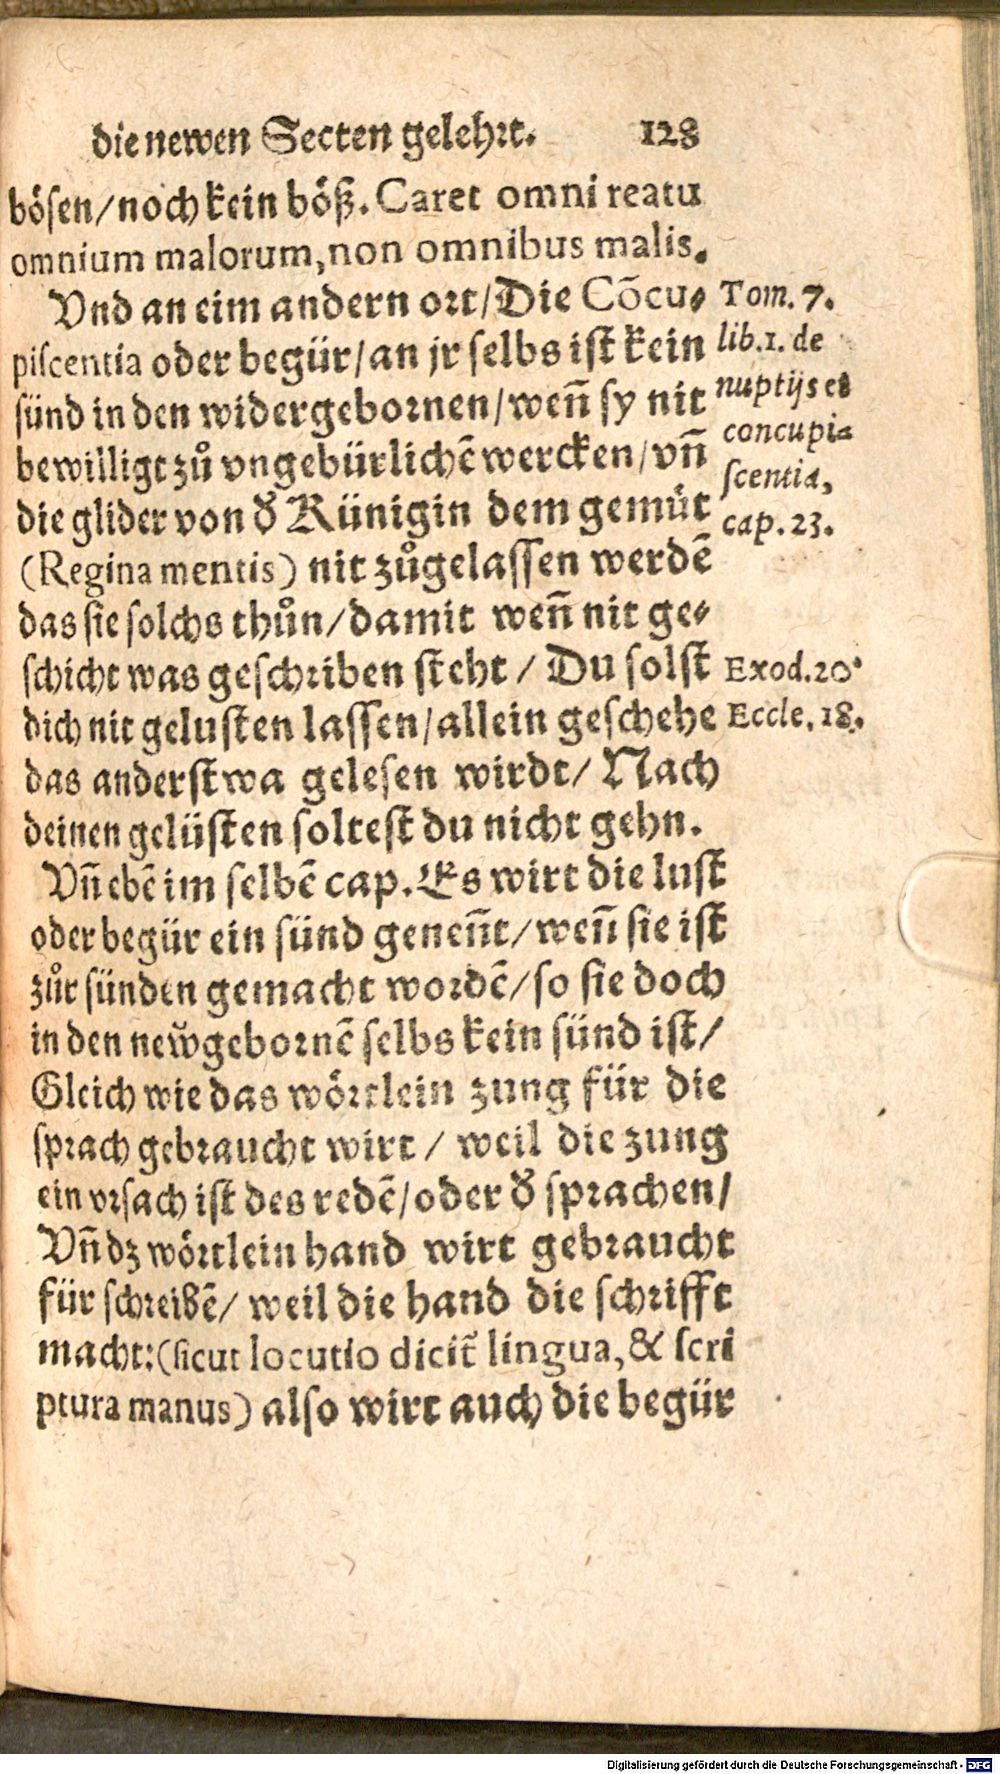 die newen Secten gelehrt. 128
bösen/noch kein böß. Caret omni reatu
omnium malorum, non omnibus malis.
Vnd an eim andern ort/Die Cõcu⸗
piscentia oder begür/an jr selbs ist kein
sünd in den widergebornen/weñ sy nit
bewilligt zů vngebürlichẽ wercken/vñ
die glider von d̕ Künigin dem gemüt
(Regina mentis) nit zůgelassen werdẽ
das sie solchs thůn/damit weñ nit ge⸗
schicht was geschriben steht / Du solst
dich nit gelusten lassen/allein geschehe
das anderstwa gelesen wirdt/ Nach
deinen gelüsten soltest du nicht gehn.
Vñ ebẽ im selbẽ cap. Es wirt die lust
oder begür ein sünd geneñt/weñ sie ist
zůr sünden gemacht wordẽ/so sie doch
in den neẘgebornẽ selbs kein sünd ist/
Gleich wie das wörtlein zung für die
sprach gebraucht wirt / weil die zung
ein vrsach ist des redẽ/oder d̕ sprachen/
Vñ dz wörtlein hand wirt gebraucht
für schreibẽ/ weil die hand die schrifft
macht:(sicut locutio dicit̃ lingua, & scri
ptura manus) also wirt auch die begür
Tom. 7.
lib.1. de
nuptijs et
concupi⸗
scentia,
cap. 23.
Exod.20.
Eccle. 18.
Digitalisierung gefördert durch die Deutsche Forschungsgemeinschaft - DFG